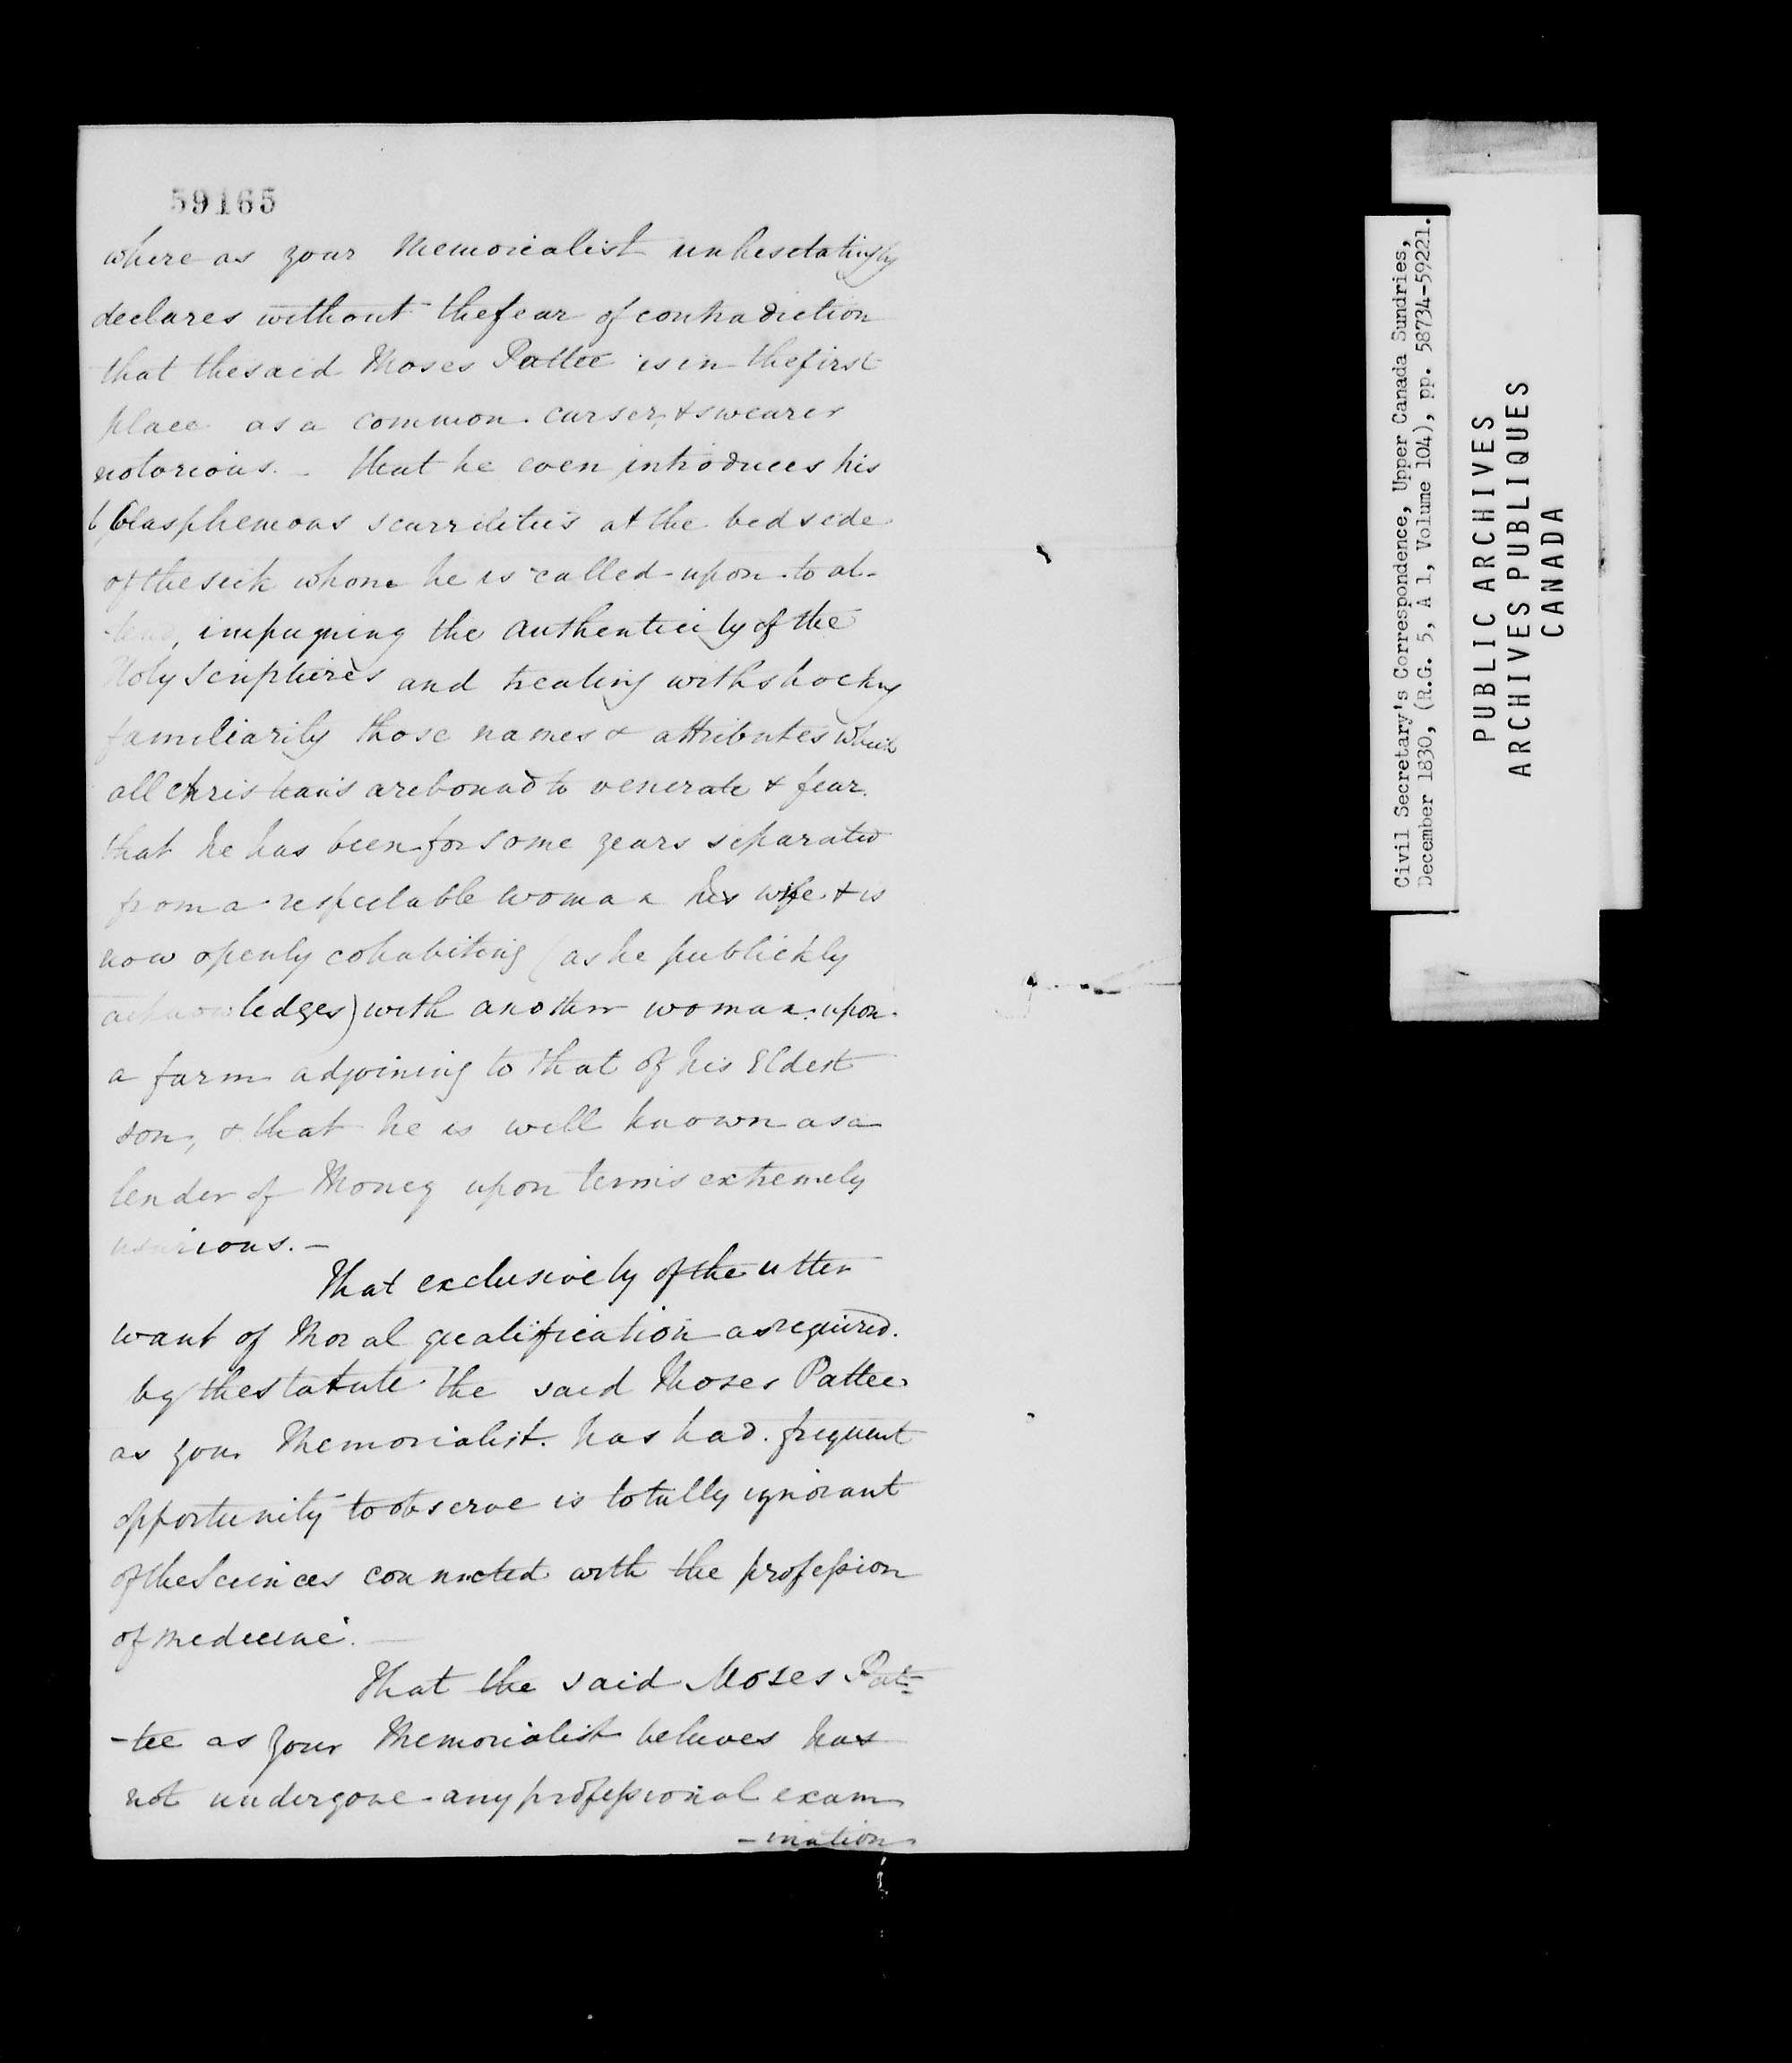 59165
where as your Memorialist unhesitatingly
declares without the fear of contradiction
that the said Moses Pattee is in the first
place as a common curser, & swearer
notorious. - that he even introduces his
blasphemous scurrilities at the bed side
of the sick whom he is called upon to at-
-tend, impugning the authenticity of the
Holy Scriptures and treating with shocking
familiarity those names & attributes which
all christians are bound to venerate & fear.
that he has been for some years separated
from a respectable woman his wife & is
now openly cohabiting (as he publickly
acknowledges) with another woman upon
a farm adjoining to that of his Eldest
son, & that he is well known as a
lender of Money upon terms extremely
usurious. -
That exclusively of the utter
want of Moral qualification as required
by the statute the said Moses Pattee
as your Memorialist has had frequent
opportunity to observe is totally ignorant
of the Sciences connected with the profession
of medicine. -
That the said Moses Pat=
-tee as your Memorialist believes has
not undergone any professional exam
-ination
Civil Secretary's Correspondence, Upper Canada Sundries,
December 1830, (R.G. 5, A 1, Volume 104), pp. 58734-59221.
PUBLIC ARCHIVES
ARCHIVES PUBLIQUES
CANADA